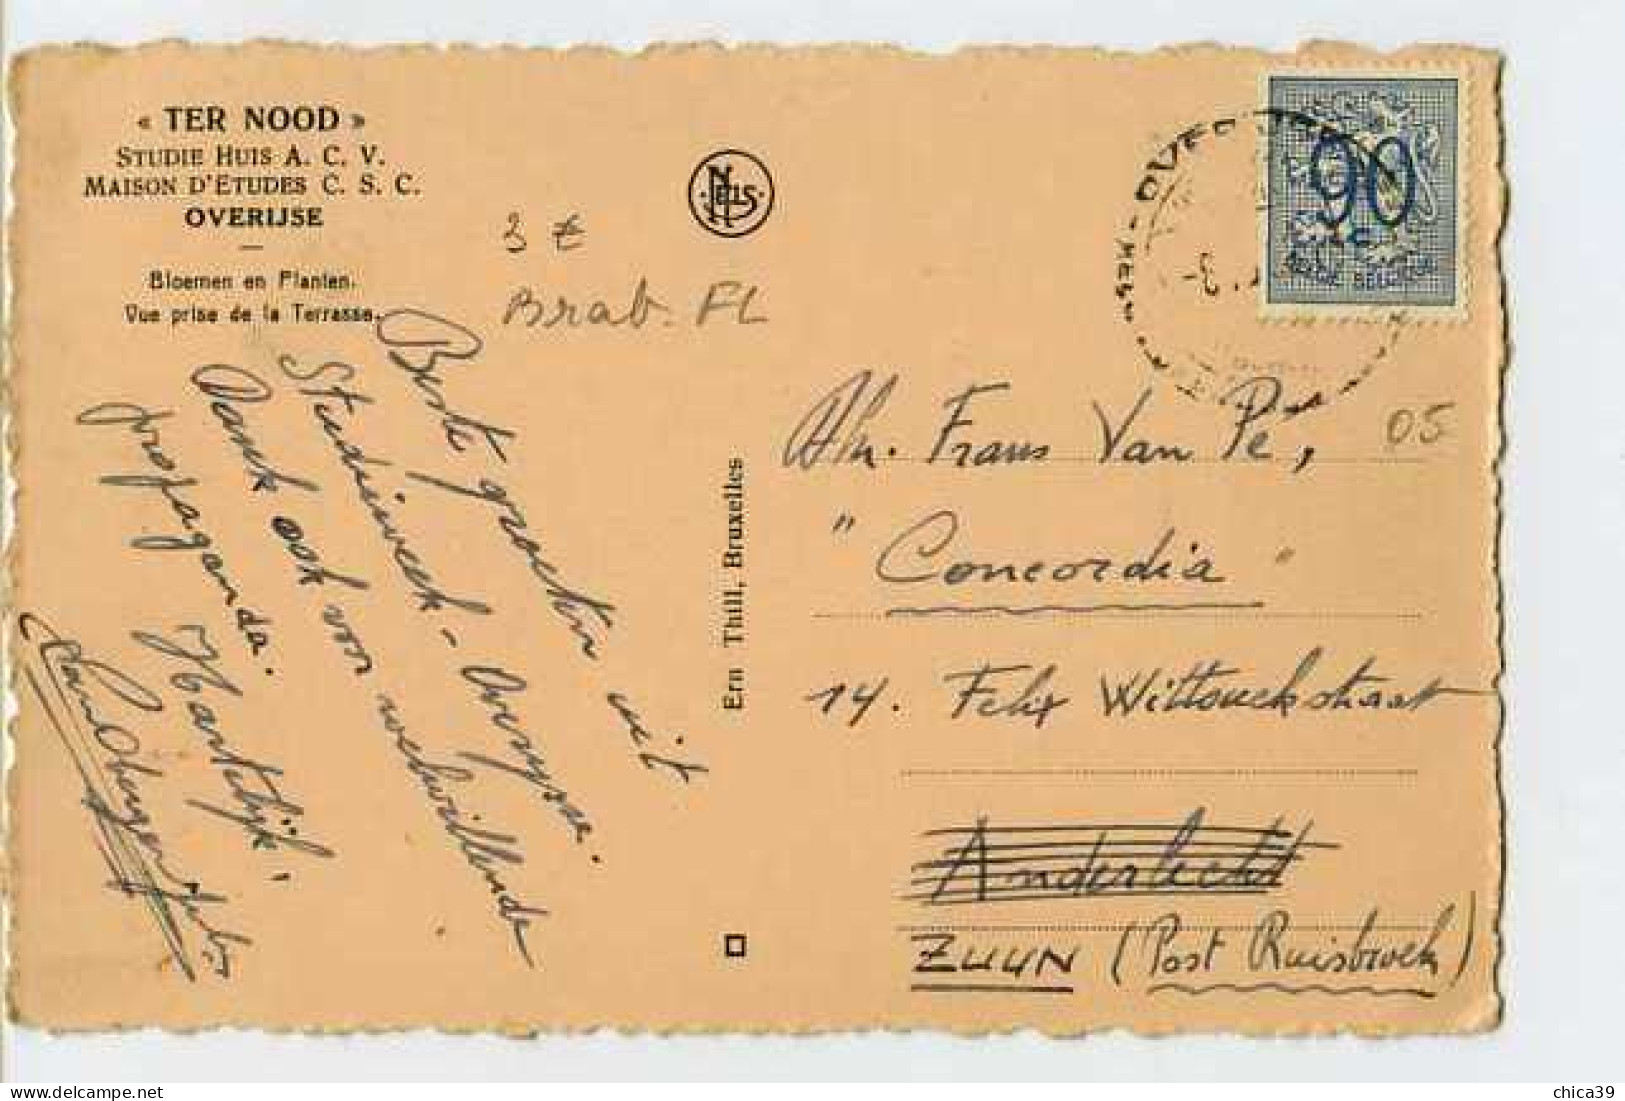 « TER NOOD »
STUDIE HUIS A. C. V.
MAISON D'ETUDES C. S. C.
OVERIJSE
Bloemen en Planten.
Vue prise de la Terrasse.
3 €
Brab. FL
NELS
90
BELGIE BELGIQUE
Beste groeten uit
Studieweek - Overyse.
Dank ook voor welwillende
propaganda.
Hartelijk,
Ern Thill, Bruxelles
Frans Van Pé,
05
"Concordia"
14. Felix Wittouckstraat
Anderlecht
ZUUN (Post Ruisbroek)
chica39